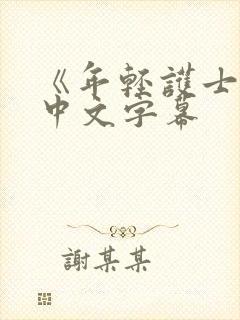 《年輕護士
中文字幕
謝某某